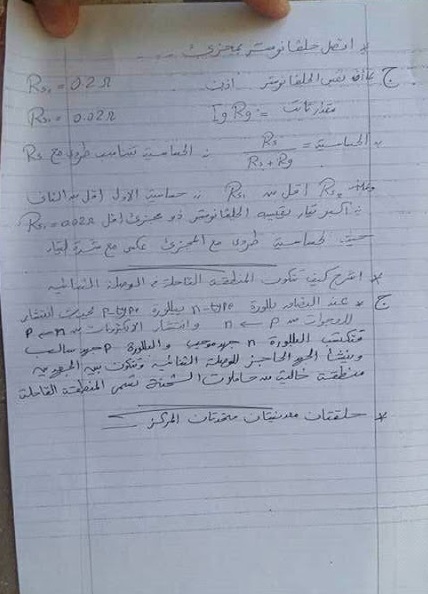 * اتصل جلفانومتر بمجزئ ....
ج نفس الجلفانومتر اذن Rs₁ = 0.2Ω
مقدار ثابت = Ig Rg Rs₂ = 0.02Ω
الحساسية = Rs / Rs + Rg ∴ الحساسية تتناسب طردى مع Rs
Rs₂ اقل من Rs₁ ∴ حساسية الاول اقل من الثانى
∴ أكبر تيار يقيسه الجلفانومتر ذو مجزئ اقل Rs₂ = 0.02Ω
حيث الحساسية طردى مع المجزئ عكسى مع شدة التيار
* اشرح كيف تتكون المنطقة القاحلة فى الوصلة الثنائية
ج * عند التصاق بللورة n-type ببللورة p-type يحدث انتشار
للفجوات من p ← n وانتشار الالكترونات من n ← p
فتكتسب البللورة n جهد موجب والبللورة p جهد سالب
وينشأ الجهد الحاجز للوصلة الثنائية وتتكون بين الجهدين
منطقة خالية من حاملات الشحنة تسمى المنطقة القاحلة
* حلقتان معدنيتان متحدتان المركز